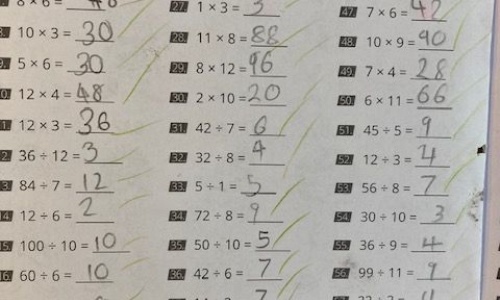 8 × 6 = 48
10 × 3 = 30
9. 5 × 6 = 30
0. 12 × 4 = 48
1. 12 × 3 = 36
2. 36 ÷ 12 = 3
3. 84 ÷ 7 = 12
14. 12 ÷ 6 = 2
15. 100 ÷ 10 = 10
16. 60 ÷ 6 = 10
27. 1 × 3 = 3
28. 11 × 8 = 88
29. 8 × 12 = 96
30. 2 × 10 = 20
31. 42 ÷ 7 = 6
32. 32 ÷ 8 = 4
33. 5 ÷ 1 = 5
34. 72 ÷ 8 = 9
35. 50 ÷ 10 = 5
36. 42 ÷ 6 = 7
47. 7 × 6 = 42
48. 10 × 9 = 90
49. 7 × 4 = 28
50. 6 × 11 = 66
51. 45 ÷ 5 = 9
52. 12 ÷ 3 = 4
53. 56 ÷ 8 = 7
54. 30 ÷ 10 = 3
55. 36 ÷ 9 = 4
56. 99 ÷ 11 = 9